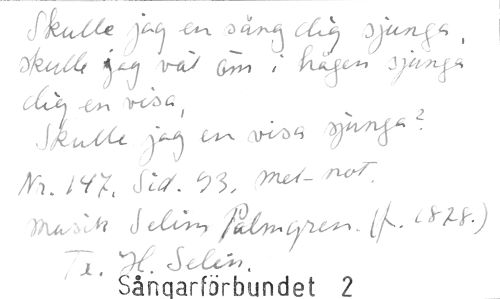 Skulle jag en sång dig sjunga,
skulle jag väl öm i hågen sjunga
dig en visa,
Skulle jag en visa sjunga?
Nr. 147. Sid. 93. mel-not.
musik Selim Palmgren. (f. 1878.)
Te. H. Selin.
Sångarförbundet 2